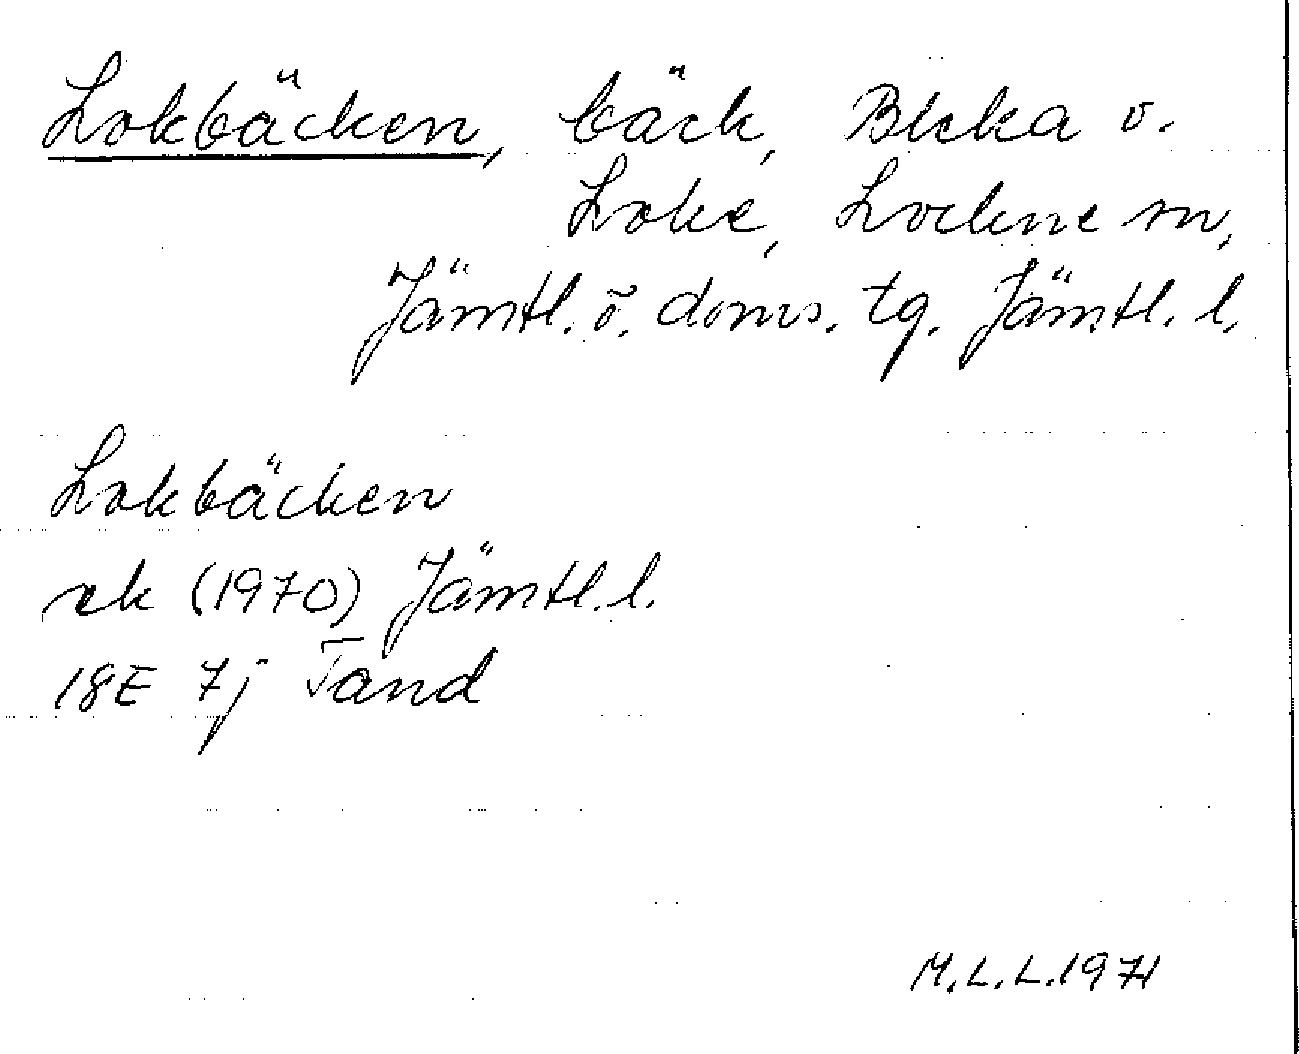 Lokbäcken, bäck, Bleka o.
Loke, Lockne sn,
Jämtl. ö. doms. tg. Jämtl. l.
Lokbäcken
ek (1970) Jämtl. l.
18E 7j Tand
M.L.L. 1971